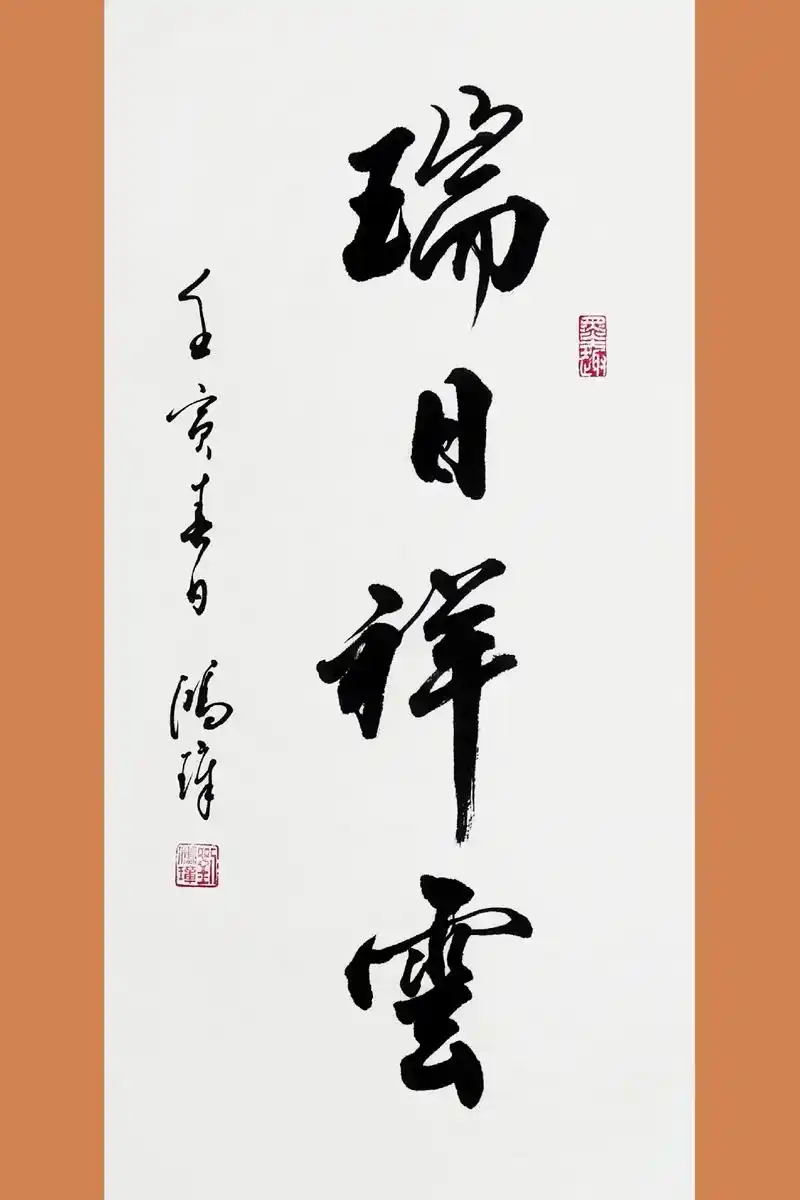 瑞日祥雲
壬寅春日 鴻璋